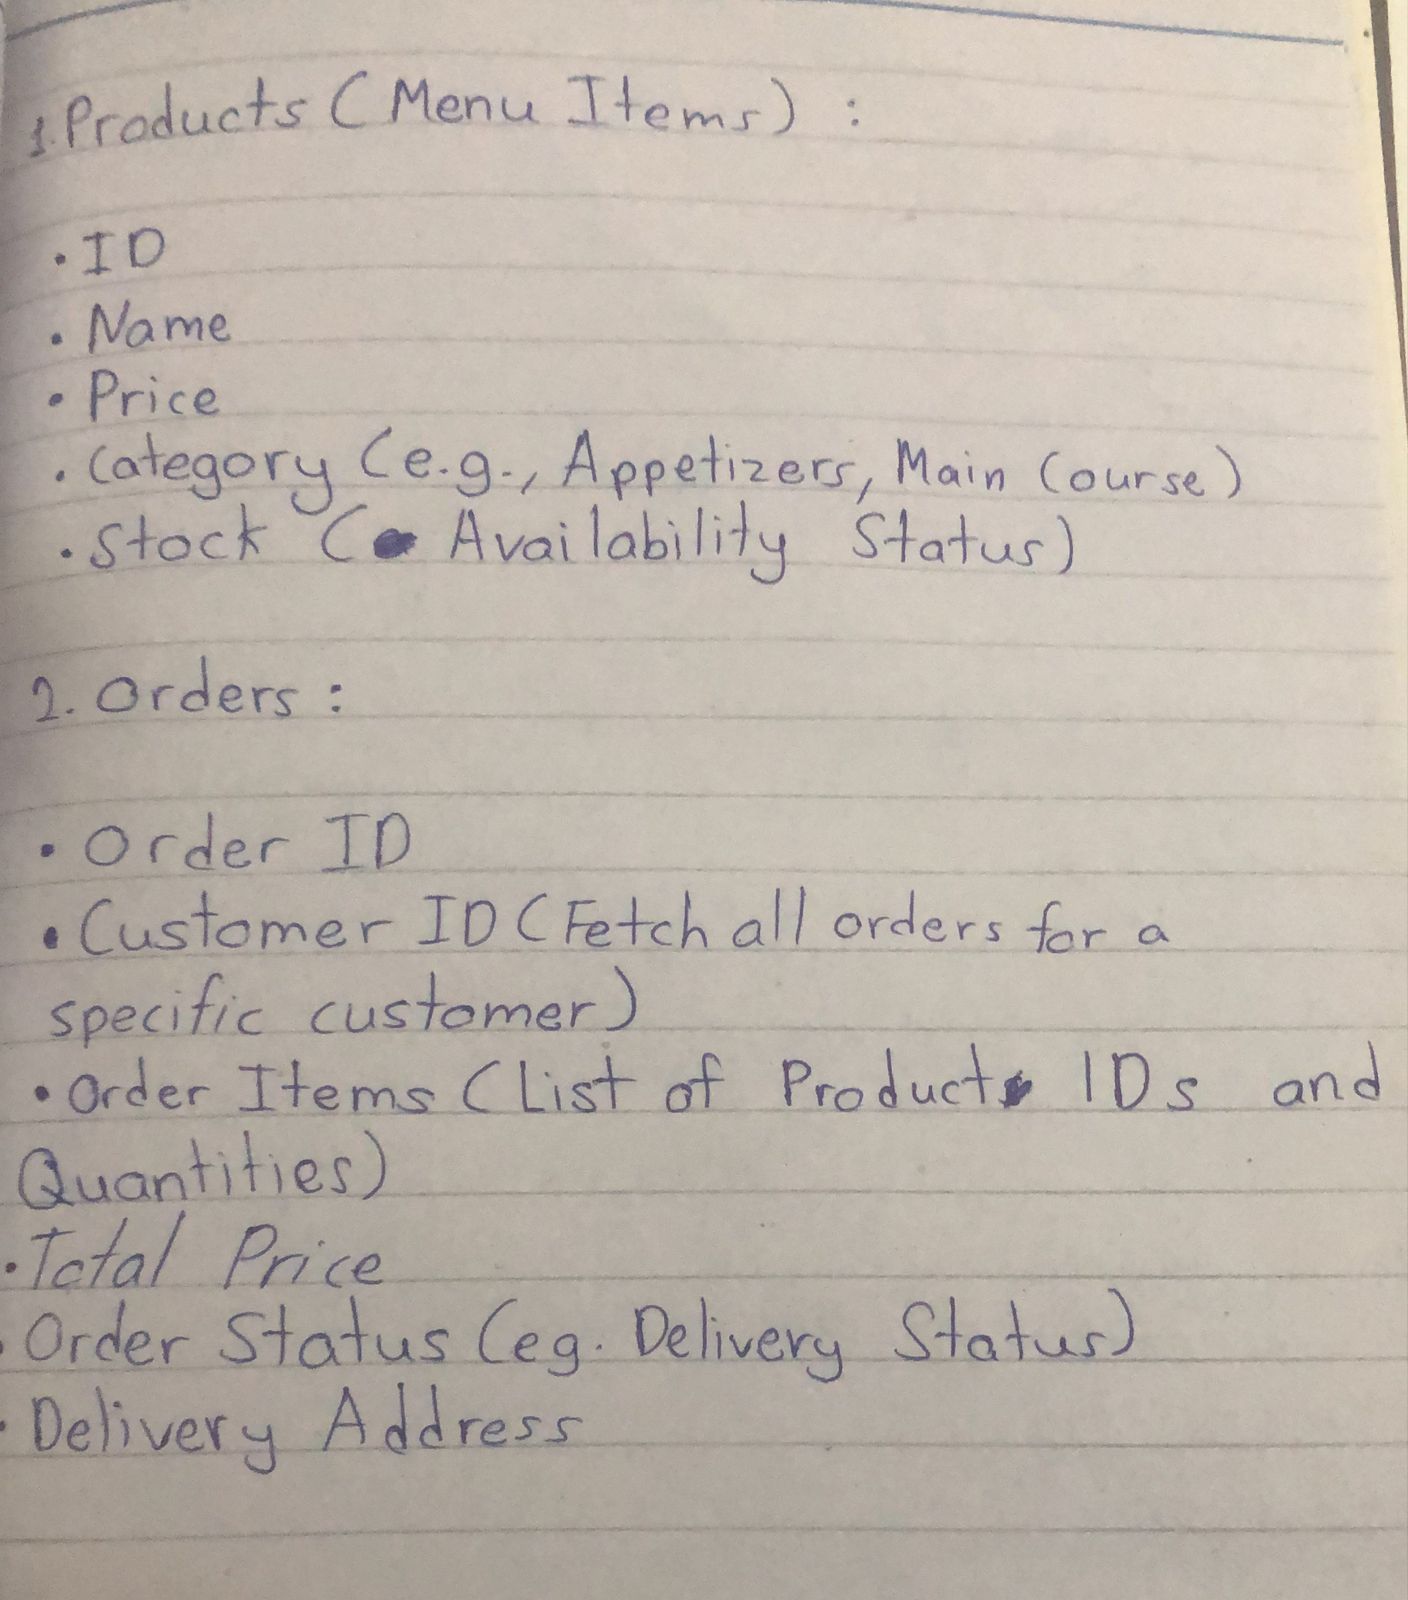 1. Products (Menu Items) :
• ID
• Name
• Price
• Category (e.g., Appetizers, Main Course)
• Stock ( Availability Status)
2. Orders :
• Order ID
• Customer ID (Fetch all orders for a
specific customer)
• Order Items (List of Product IDs and
Quantities)
• Total Price
• Order Status (eg. Delivery Status)
• Delivery Address